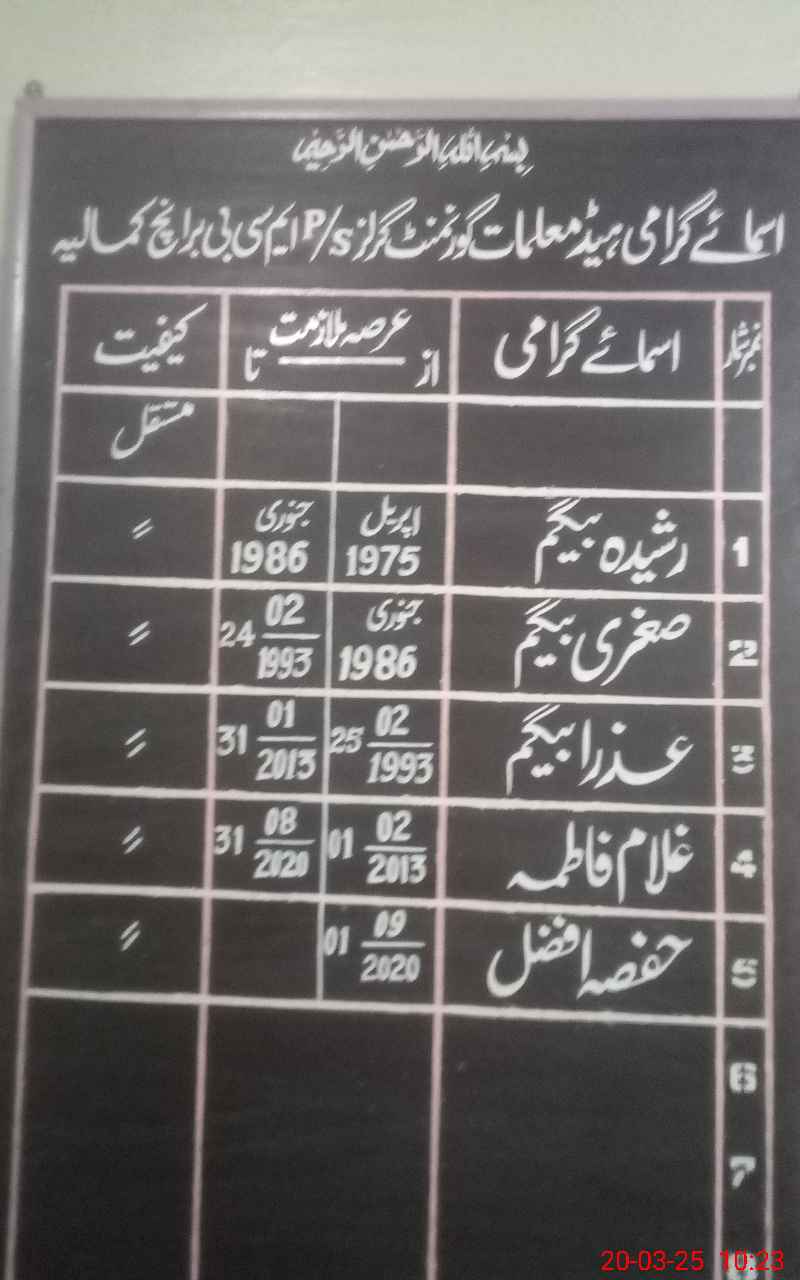 بسم اللہ الرحمن الرحیم
اسمائے گرامی ہیڈ معلمات گورنمنٹ گرلز P/S ایم سی بی برانچ کمالیہ
نمبر شمار اسمائے گرامی عرصہ ملازمت از تا کیفیت
مستقل
1 رشیدہ بیگم اپریل 1975 جنوری 1986 〃
2 صغری بیگم جنوری 1986 24 02/1993 〃
3 عذرا بیگم 25 02/1993 31 01/2013 〃
4 غلام فاطمہ 01 02/2013 31 08/2020 〃
5 حفصہ افضل 01 09/2020 〃
6
7
20-03-25 10:23